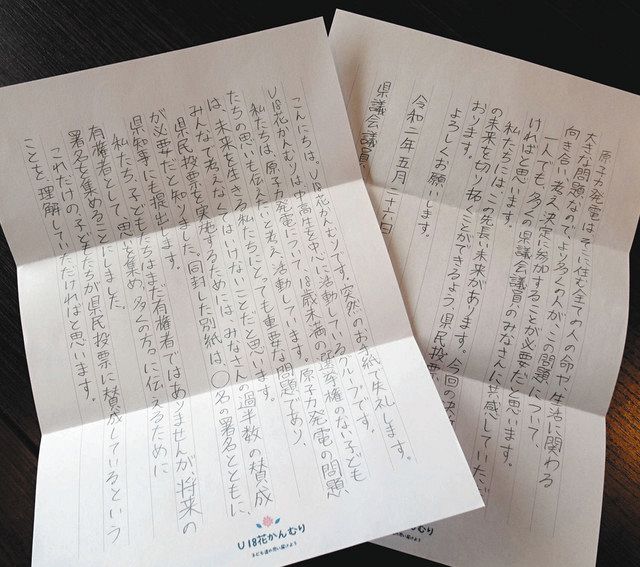 こんにちは、U18花かんむりです。突然のお手紙、失礼します。
U18花かんむりは中高生を中心に活動しているグループです。
私たちは、原子力発電について、18歳未満の選挙権のない子ども
たちの思いも伝えたいと考え、活動しています。原子力発電の問題
は、未来を生きる私たちにとっても重要な問題であり、
みんなで考えなくてはいけないことだと思います。
県民投票を実施するためには、みなさんの過半数の賛成
が必要だと知りました。同封した別紙は、〇名の署名とともに、
県知事にも提出します。
私たち、子どもたちはまだ有権者ではありませんが、将来の
有権者として、思いを集め、多くの方々に伝えるために
署名を集めることにしました。
これだけの、子どもたちが県民投票に賛成しているという
ことを理解していただければと思います。
U18花かんむり
子ども達の思い届けよう
原子力発電は、そこに住む全ての人の命や生活に関わる
大きな問題なので、より多くの人がこの問題について
向き合い、考え、決定に参加することが必要だと思います。
一人でも、多くの県議会議員のみなさんに共感していただ
ければと思います。
私たちには、この先長い未来があります。今回の
の未来を切り拓くことができるよう、県民投票
おります。
よろしくお願いします。
令和二年五月二十六日
県議会議員
花かんむり